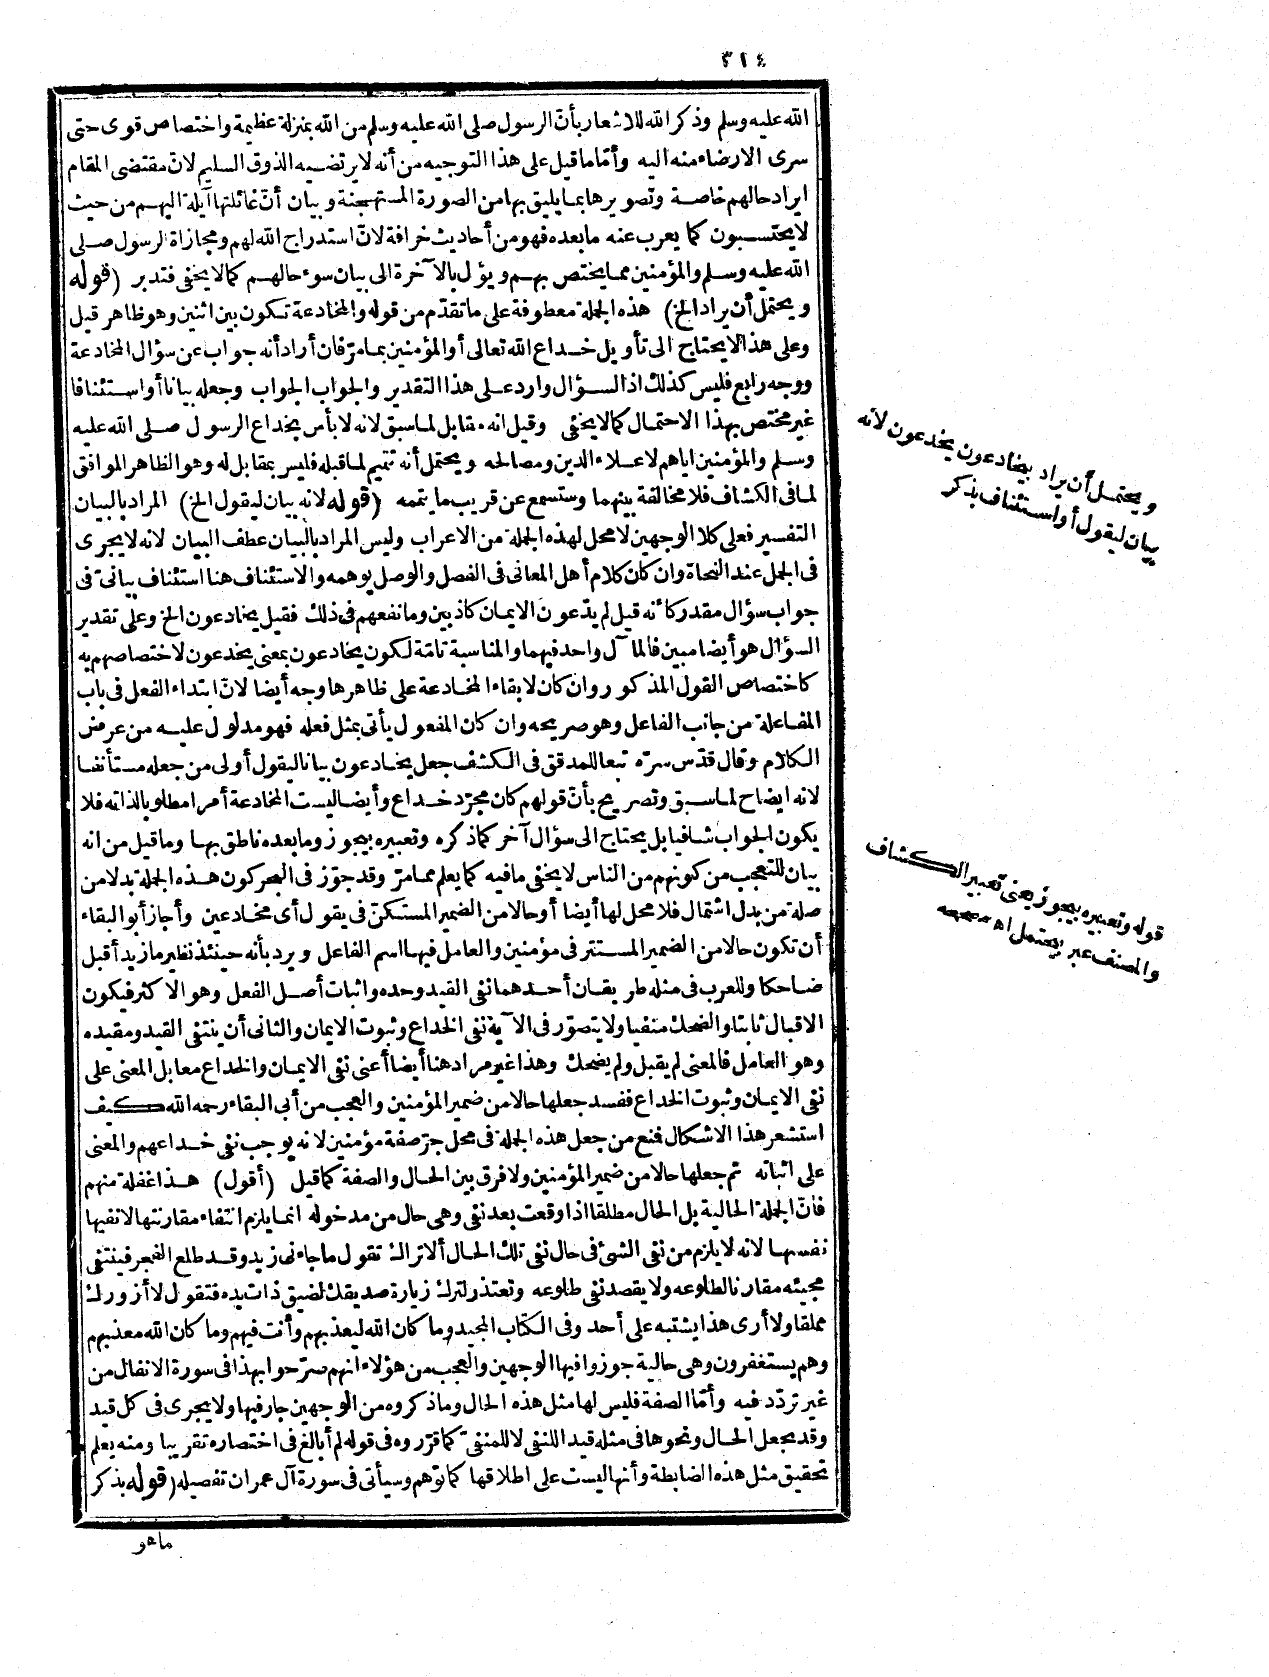 ٣١٤
الله عليه وسلم وذكر الله للاشعار بأنّ الرسول صلى الله عليه وسلم من الله بمنزلة عظيمة واختصاص قوى حتى
سرى الارضاء منه اليه وأمّا ما قيل على هذا التوجيه من أنه لا يرتضيه الذوق السليم لانّ مقتضى المقام
ايراد حالهم خاصة وتصويرها بما يليق بها من الصورة المستهجنة وبيان أنّ غائلتها آيلة اليهم من حيث
لا يحتسبون كما يعرب عنه ما بعده فهو من أحاديث خرافة لانّ استدراج الله لهم ومجازاة الرسول صلى
الله عليه وسلم والمؤمنين مما يختص بهم ويؤل بالآخرة الى بيان سوء حالهم كما لا يخفى فتدبر (قوله
ويحتمل أن يراد الخ) هذه الجملة معطوفة على ما تقدّم من قوله والمخادعة تكون بين اثنين وهو ظاهر قيل
وعلى هذا لا يحتاج الى تأويل خداع الله تعالى أو المؤمنين بما مرّ فان أراد أنه جواب عن سؤال المخادعة
ووجه رابع فليس كذلك اذ السؤال وارد على هذا التقدير والجواب الجواب وجعله بيانا أو استئنافا
غير مختص بهذا الاحتمال كما لا يخفى وقيل انه مقابل لما سبق لانه لا بأس بخداع الرسول صلى الله عليه
وسلم والمؤمنين اياهم لاعلاء الدين ومصالحه ويحتمل أنه تتميم لما قبله فليس بمقابل له وهو الظاهر الموافق
لما فى الكشاف فلا مخالفة بينهما وستسمع عن قريب ما يتممه (قوله لانه بيان ليقول الخ) المراد بالبيان
التفسير فعلى كلا الوجهين لا محل لهذه الجملة من الاعراب وليس المراد بالبيان عطف البيان لانه لا يجرى
فى الجمل عند النحاة وان كان كلام أهل المعانى فى الفصل والوصل يوهمه والاستئناف هنا استئناف بيانىّ فى
جواب سؤال مقدر كأنه قيل لم يدّعون الايمان كاذبين وما نفعهم فى ذلك فقيل يخادعون الخ وعلى تقدير
السؤال هو أيضا مبين فالمآل واحد فيهما والمناسبة تامّة لكون يخادعون بمعنى يخدعون لاختصاصهم به
كاختصاص القول المذكور وان كان لابقاء المخادعة على ظاهرها وجه أيضا لانّ ابتداء الفعل فى باب
المفاعلة من جانب الفاعل وهو صريحه وان كان المفعول يأتى بمثل فعله فهو مدلول عليه من عرض
الكلام وقال قدّس سرّه تبعا للمدقق فى الكشف جعل يخادعون بيانا ليقول أولى من جعله مستأنفا
لانه ايضاح لما سبق وتصريح بأنّ قولهم كان مجرّد خداع وأيضا ليست المخادعة أمرا مطلوبا لذاته فلا
يكون الجواب شافيا بل يحتاج الى سؤال آخر كما ذكره وتعبيره بيجوز وما بعده ناطق بها وما قيل من انه
بيان للتعجب من كونهم من الناس لا يخفى ما فيه كما يعلم مما مرّ وقد جوّز فى البحر كون هذه الجملة بدلا من
صلة من بدل اشتمال فلا محل لها أيضا أو حالا من الضمير المستكنّ فى يقول أى مخادعين وأجاز أبو البقاء
أن تكون حالا من الضمير المستتر فى مؤمنين والعامل فيها اسم الفاعل ويرد بأنه حينئذ نظير ما زيد أقبل
ضاحكا وللعرب فى مثله طريقان أحدهما نفى القيد وحده واثبات أصل الفعل وهو الاكثر فيكون
الاقبال ثابتا والضحك منفيا ولا يتصوّر فى الآية نفى الخداع وثبوت الايمان والثانى أن ينتفى القيد ومقيده
وهو العامل فالمعنى لم يقبل ولم يضحك وهذا غير مراد هنا أيضا أعنى نفى الايمان والخداع معا بل المعنى على
نفى الايمان وثبوت الخداع ففسد جعلها حالا من ضمير المؤمنين والعجب من أبى البقاء رحمه الله كيف
استشعر هذا الاشكال فمنع من جعل هذه الجملة فى محل جرّ صفة مؤمنين لانه يوجب نفى خداعهم والمعنى
على اثباته ثم جعلها حالا من ضمير المؤمنين ولا فرق بين الحال والصفة كما قيل (أقول) هذا غفلة منهم
فانّ الجملة الحالية بل الحال مطلقا اذا وقعت بعد نفى وهى حال من مدخوله انما يلزم انتفاء مقارنتها لا نفيها
نفسها لانه لا يلزم من نفى الشئ فى حال نفى تلك الحال ألا تراك تقول ما جاءنى زيد وقد طلع الفجر فينتفى
مجيئه مقارنا لطلوعه ولا يقصد نفى طلوعه وتعتذر لترك زيارة صديقك لضيق ذات يده فتقول لا أزورك
مملقا ولا أرى هذا يشتبه على أحد وفى الكتاب المجيد وما كان الله ليعذبهم وأنت فيهم وما كان الله معذبهم
وهم يستغفرون وهى حالية جوزوا فيها الوجهين والعجب من هؤلاء انهم صرّحوا بهذا فى سورة الانفال من
غير تردّد فيه وأمّا الصفة فليس لها مثل هذه الحال وما ذكروه من الوجهين جار فيها ولا يجرى فى كل قيد
وقد يجعل الحال ونحوها فى مثله قيد اللنفى لا للمنفىّ كما قرّروه فى قوله لم أبالغ فى اختصاره تقريبا ومنه يعلم
تحقيق مثل هذه الضابطة وأنها ليست على اطلاقها كما توهم وسيأتى فى سورة آل عمران تفصيله (قوله بذكر
ما هو
ويحتمل أن يراد بيخادعون يخدعون لانه
بيان ليقول أو استئناف بذكر
قوله وتعبيره بيجوز يعنى تعبير الكشاف
والمصنف عبر بيحتمل اه مصححه